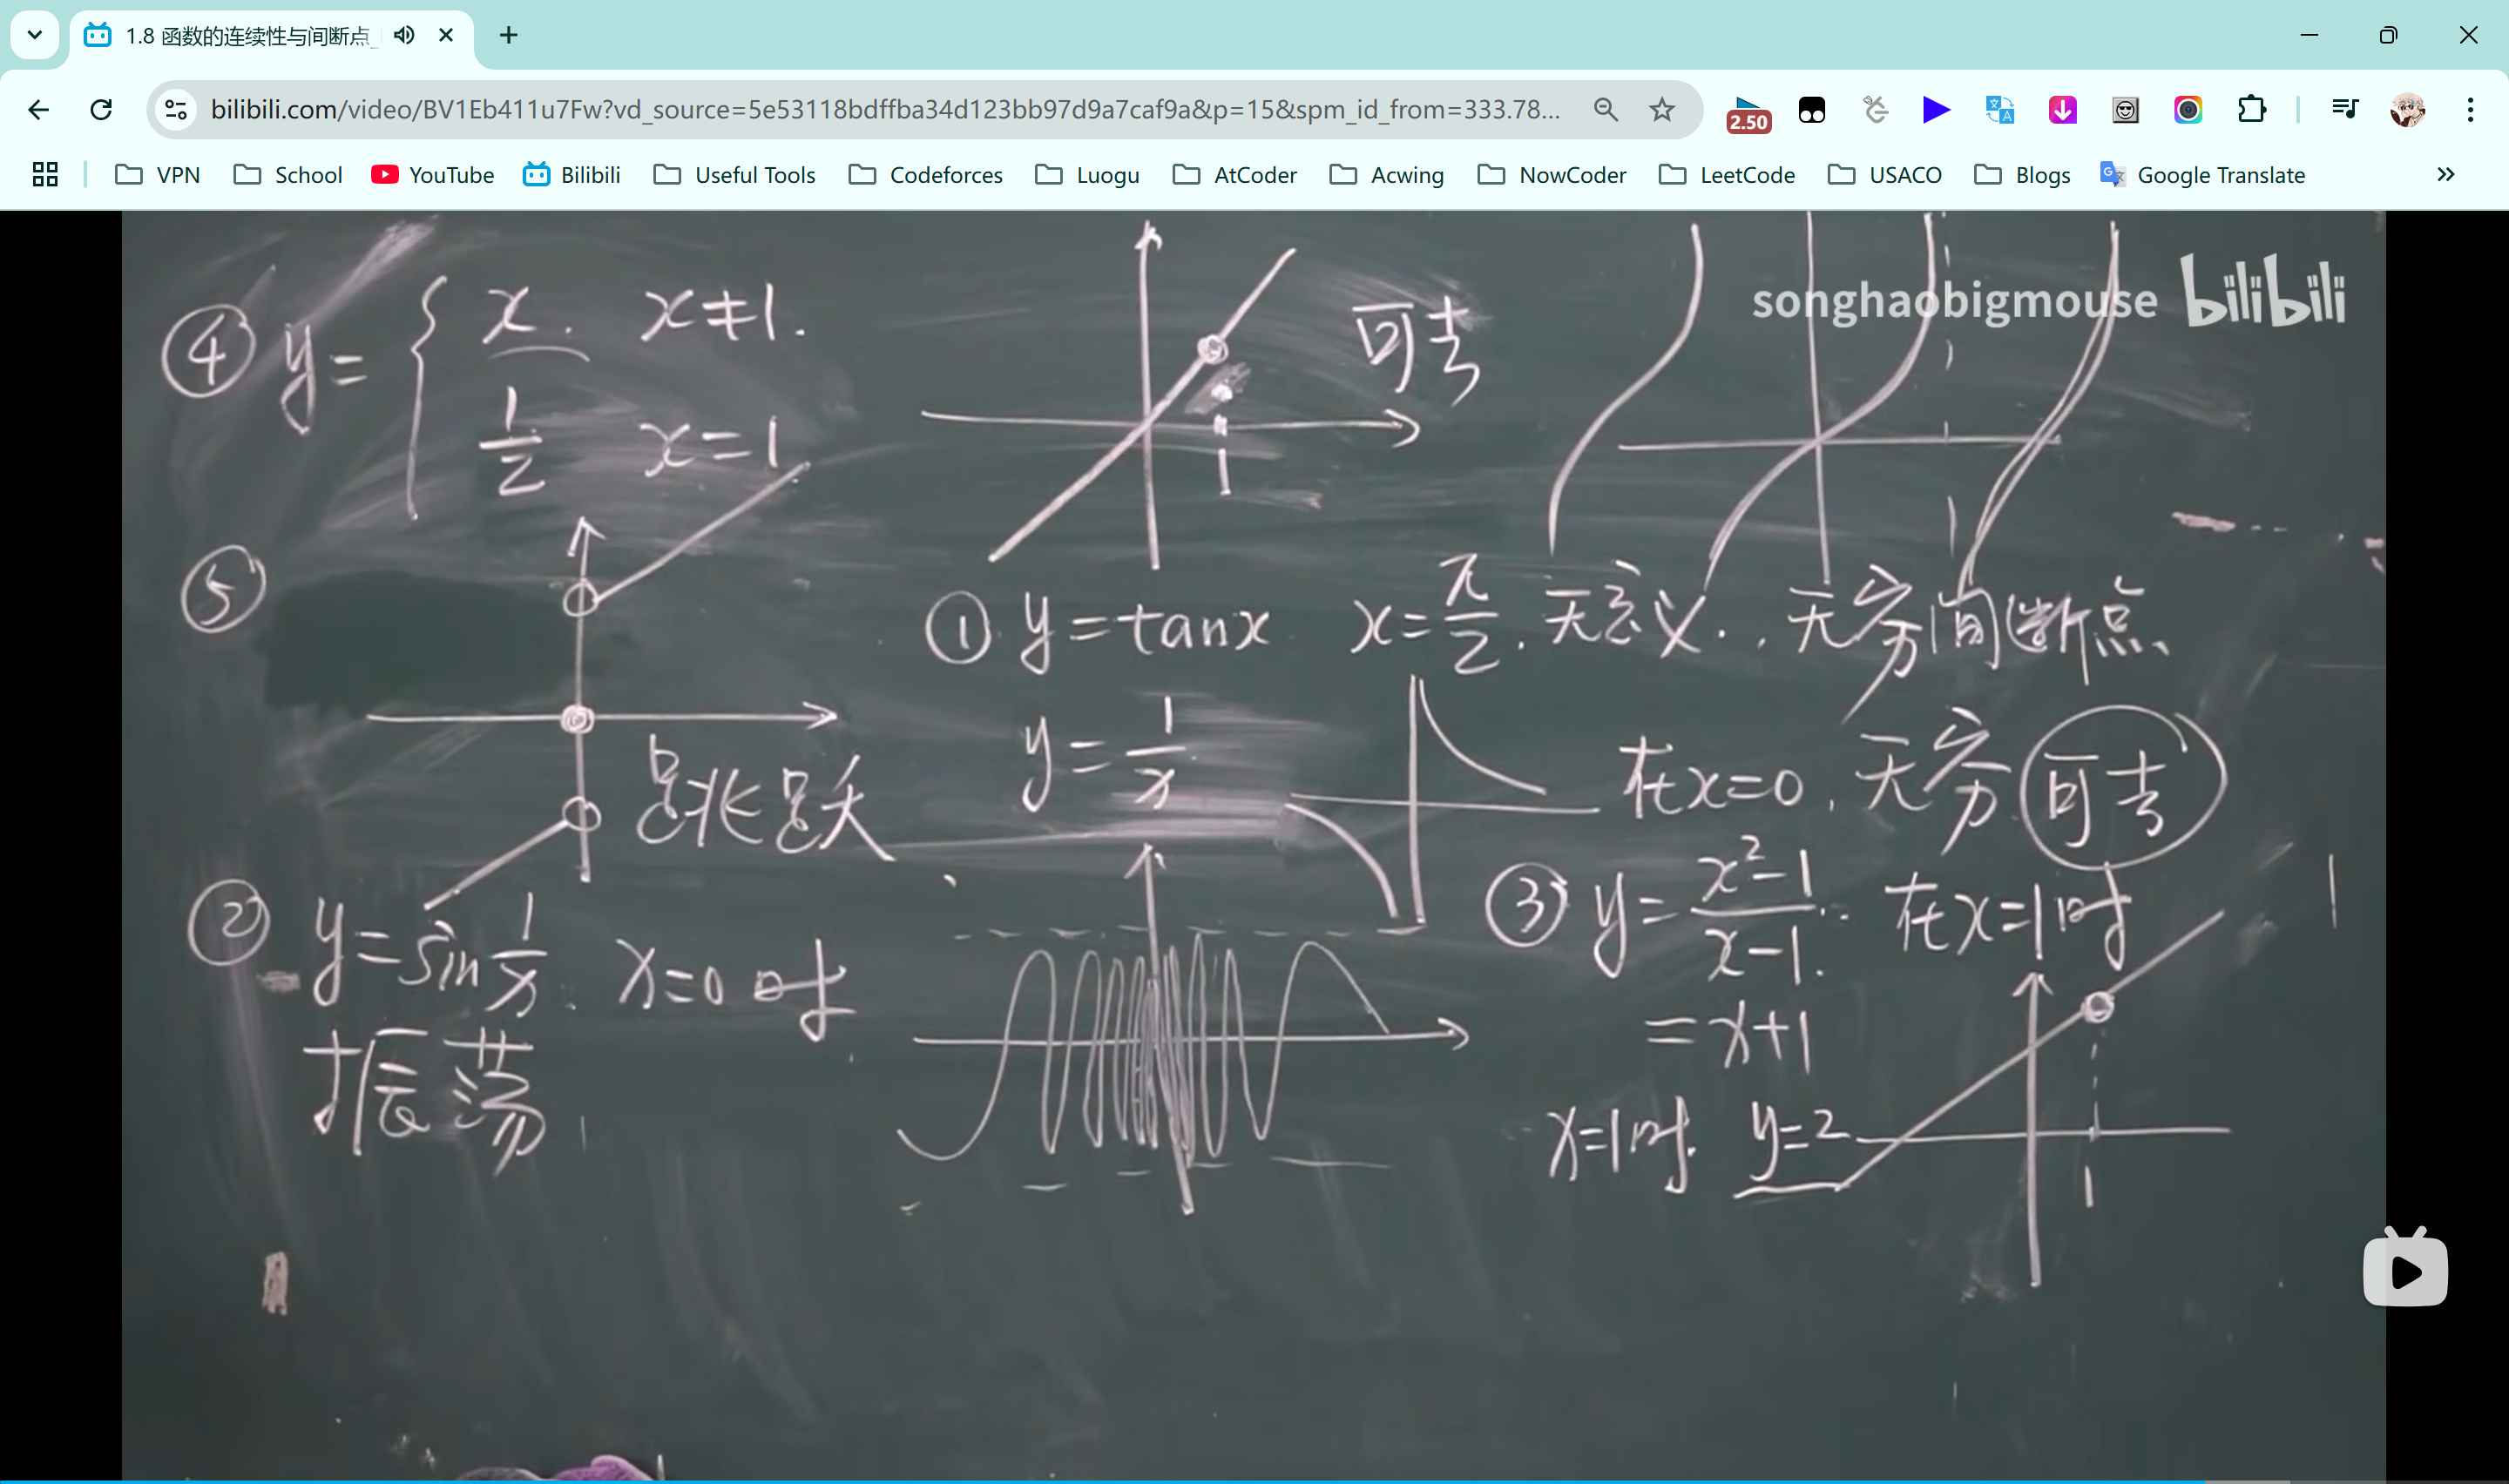 1.8 函数的连续性与间断点_
bilibili.com/video/BV1Eb411u7Fw?vd_source=5e53118bdffba34d123bb97d9a7caf9a&p=15&spm_id_from=333.78...
2.50
VPN School YouTube Bilibili Useful Tools Codeforces Luogu AtCoder Acwing NowCoder LeetCode USACO Blogs Google Translate
songhaobigmouse bilibili
④ y = { x. x≠1.
1/2 x=1
可去
1
⑤
跳跃
① y=tanx x=π/2. 无意义. 无穷间断点
y=1/x 在x=0, 无穷 可去
② y=sin 1/x. x=0时
振荡
③ y= x²-1/x-1. 在x=1时
=x+1
x=1时. y=2
1